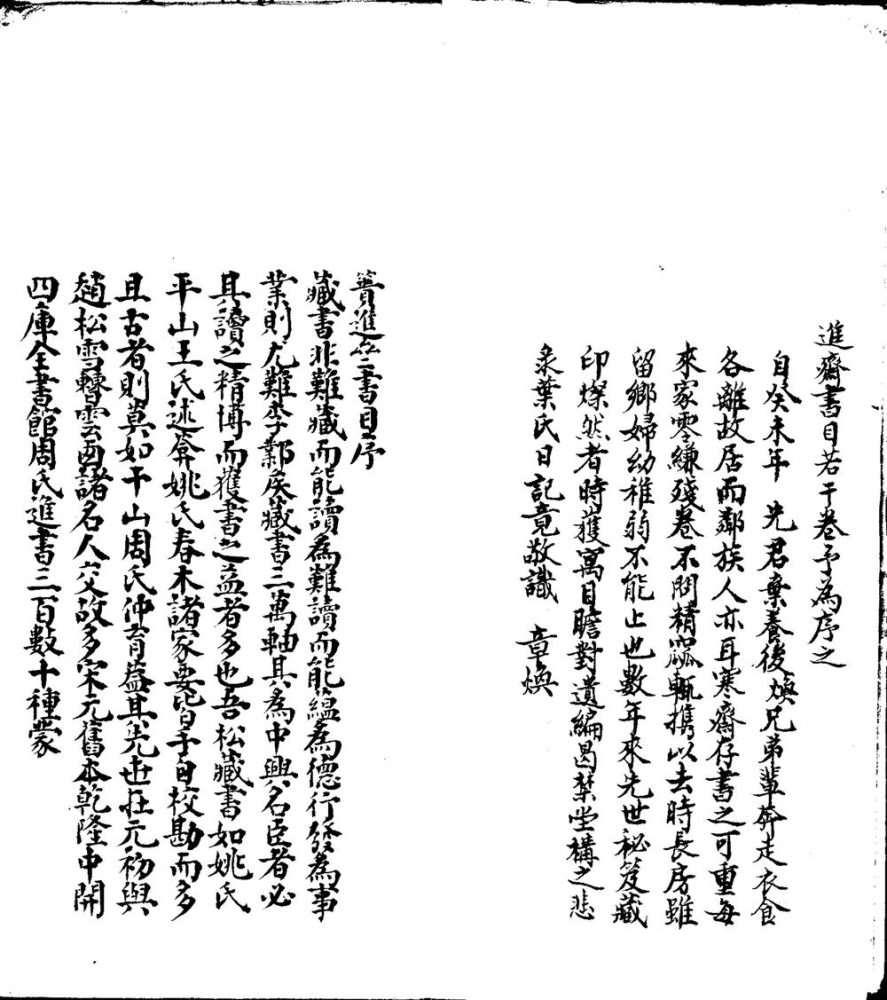 進齋書目若干卷予為序之
自癸未年　先君棄養後煥兄弟輩奔走衣食
各離故居而鄰族人亦耳寒齋存書之可重每
來家零縑殘卷不問精窳輒携以去時長房雖
留鄉婦幼稚弱不能止也數年來先世秘笈藏
印燦然者時獲寓目瞻對遺編曷禁堂構之悲
彔葉氏日記竟敬識　章煥
簣進齋書目序
藏書非難藏而能讀為難讀而能蘊為德行發為事
業則尤難李鄴侯藏書三萬軸其為中興名臣者必
其讀之精博而獲書之益者多也吾松藏書如姚氏
平山王氏述菴姚氏春木諸家要皆手自校勘而多
且古者則莫如干山周氏仲育蓋其先世在元初與
趙松雪曹雲西諸名人交故多宋元舊本乾隆中開
四庫全書館周氏進書三百數十種蒙